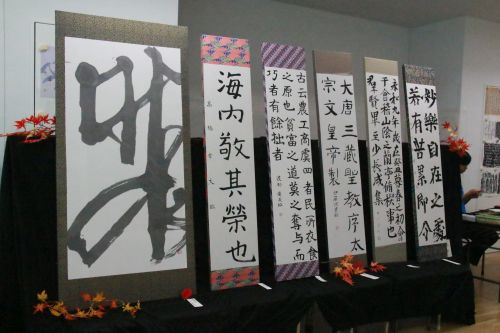 海内敬其榮也
古云農工商虞四者民所衣食
之原也貧富之道莫之奪与而
巧者有餘拙者
大唐三藏聖教序太
宗文皇帝製
永和九年歳在癸丑暮春之初會
于會稽山陰之蘭亭脩稧事也
羣賢畢至少長咸集
妙樂自在之處
若有苦累即令